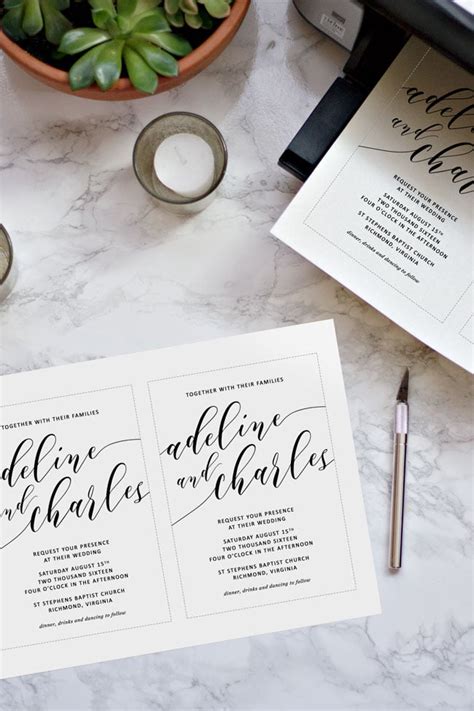 adeline
and
charles
REQUEST YOUR PRESENCE
AT THEIR WEDDING
SATURDAY AUGUST 15TH
TWO THOUSAND SIXTEEN
FOUR O'CLOCK IN THE AFTERNOON
ST STEPHENS BAPTIST CHURCH
RICHMOND, VIRGINIA
dinner, drinks and dancing to follow
TOGETHER WITH THEIR FAMILIES
adeline
and
charles
REQUEST YOUR PRESENCE
AT THEIR WEDDING
SATURDAY AUGUST 15TH
TWO THOUSAND SIXTEEN
FOUR O'CLOCK IN THE AFTERNOON
ST STEPHENS BAPTIST CHURCH
RICHMOND, VIRGINIA
dinner, drinks and dancing to follow
TOGETHER WITH THEIR FAMILIES
adeline
and
charles
REQUEST YOUR PRESENCE
AT THEIR WEDDING
SATURDAY AUGUST 15TH
TWO THOUSAND SIXTEEN
FOUR O'CLOCK IN THE AFTERNOON
ST STEPHENS BAPTIST CHURCH
RICHMOND, VIRGINIA
dinner, drinks and dancing to follow